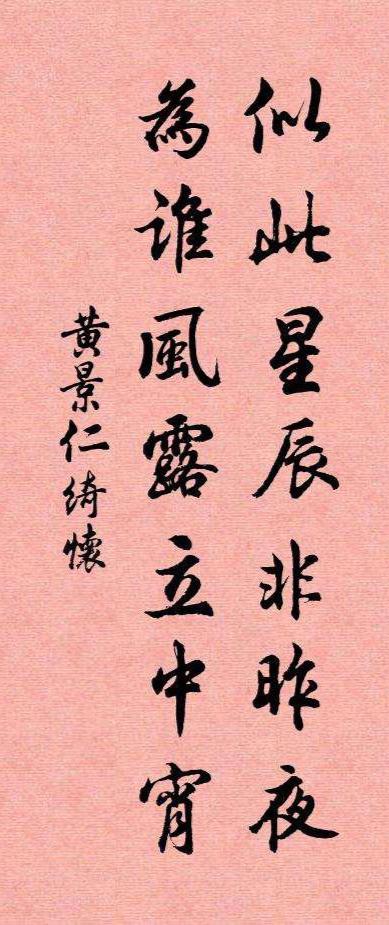 似此星辰非昨夜
為誰風露立中宵
黄景仁綺懷